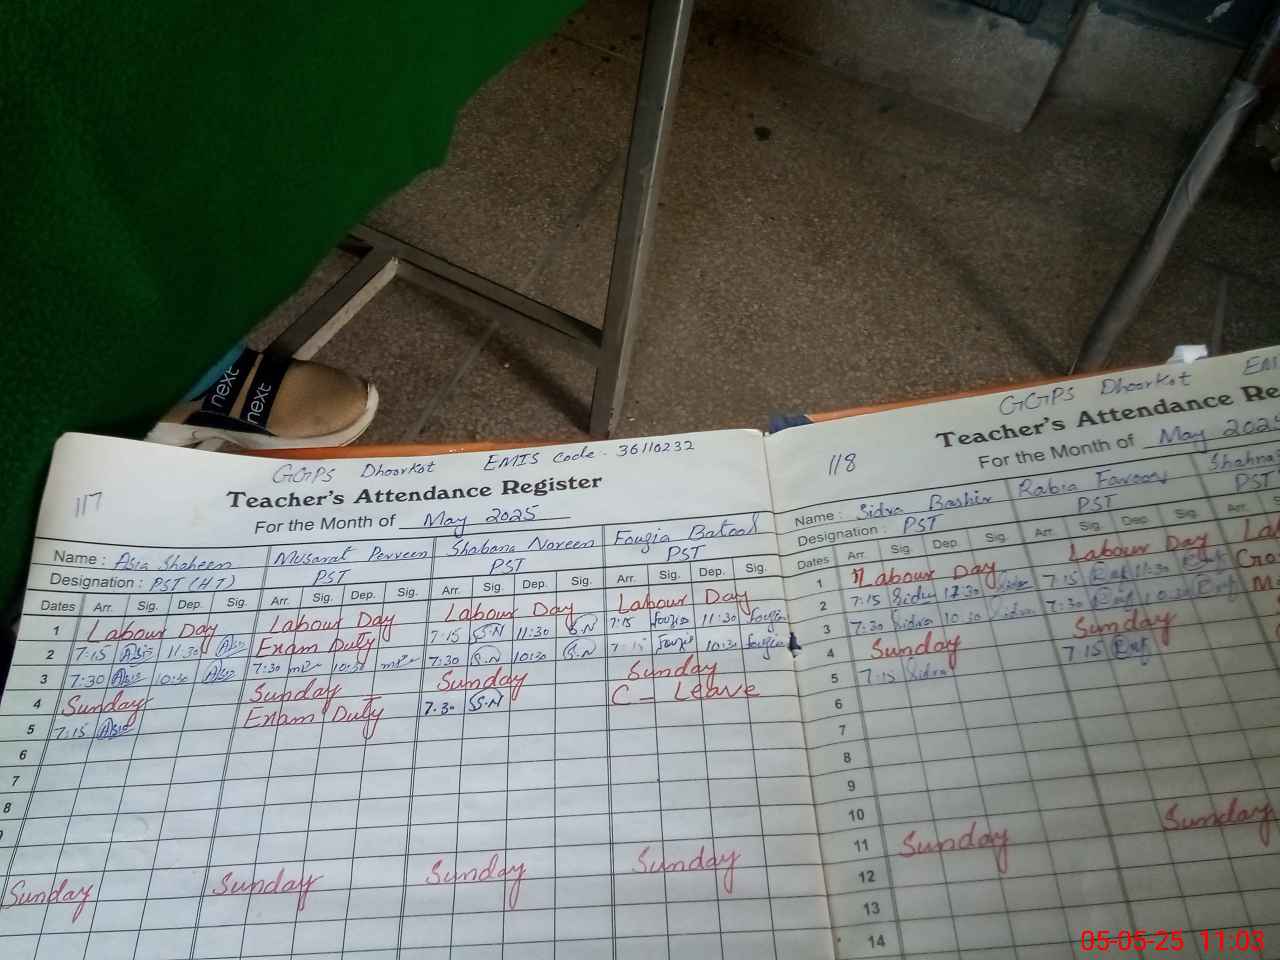 next
next
117
GGPS Dhoorkot EMIS Code - 36110232
Teacher's Attendance Register
For the Month of May 2025
Name : Asia Shaheen Musarat Perveen Shabana Noreen Fouzia Batool
Designation : PST (HT) PST PST PST
Dates Arr. Sig. Dep. Sig. Arr. Sig. Dep. Sig. Arr. Sig. Dep. Sig. Arr. Sig. Dep. Sig.
1 Labour Day Labour Day Labour Day Labour Day
2 7:15 Asia 11:30 Asia Exam Duty 7:15 S.N 11:30 S.N 7:15 fouzia 11:30 fouzia
3 7:30 Asia 10:30 Asia 7:30 10:30 7:30 S.N 10:30 S.N 7:15 fouzia 10:30 fouzia
4 Sunday Sunday Sunday Sunday
5 7:15 Asia Exam Duty 7:30 S.N C - Leave
6
7
8
Sunday Sunday Sunday Sunday
118
GGPS Dhoorkot EMI
Teacher's Attendance Re
For the Month of May 2025
Name : Sidra Bashir Rabia Farooq Shahna
Designation : PST PST PST
Dates Arr. Sig. Dep. Sig. Arr. Sig. Dep. Sig. Arr.
1 Labour Day Labour Day La
2 7:15 Sidra 11:30 Sidra 7:15 11:30
3 7:30 Sidra 10:30 Sidra 7:30 10:30
4 Sunday Sunday
5 7:15 Sidra 7:15
6
7
8
9
10
11 Sunday Sunday
12
13
14
05-05-25 11:03